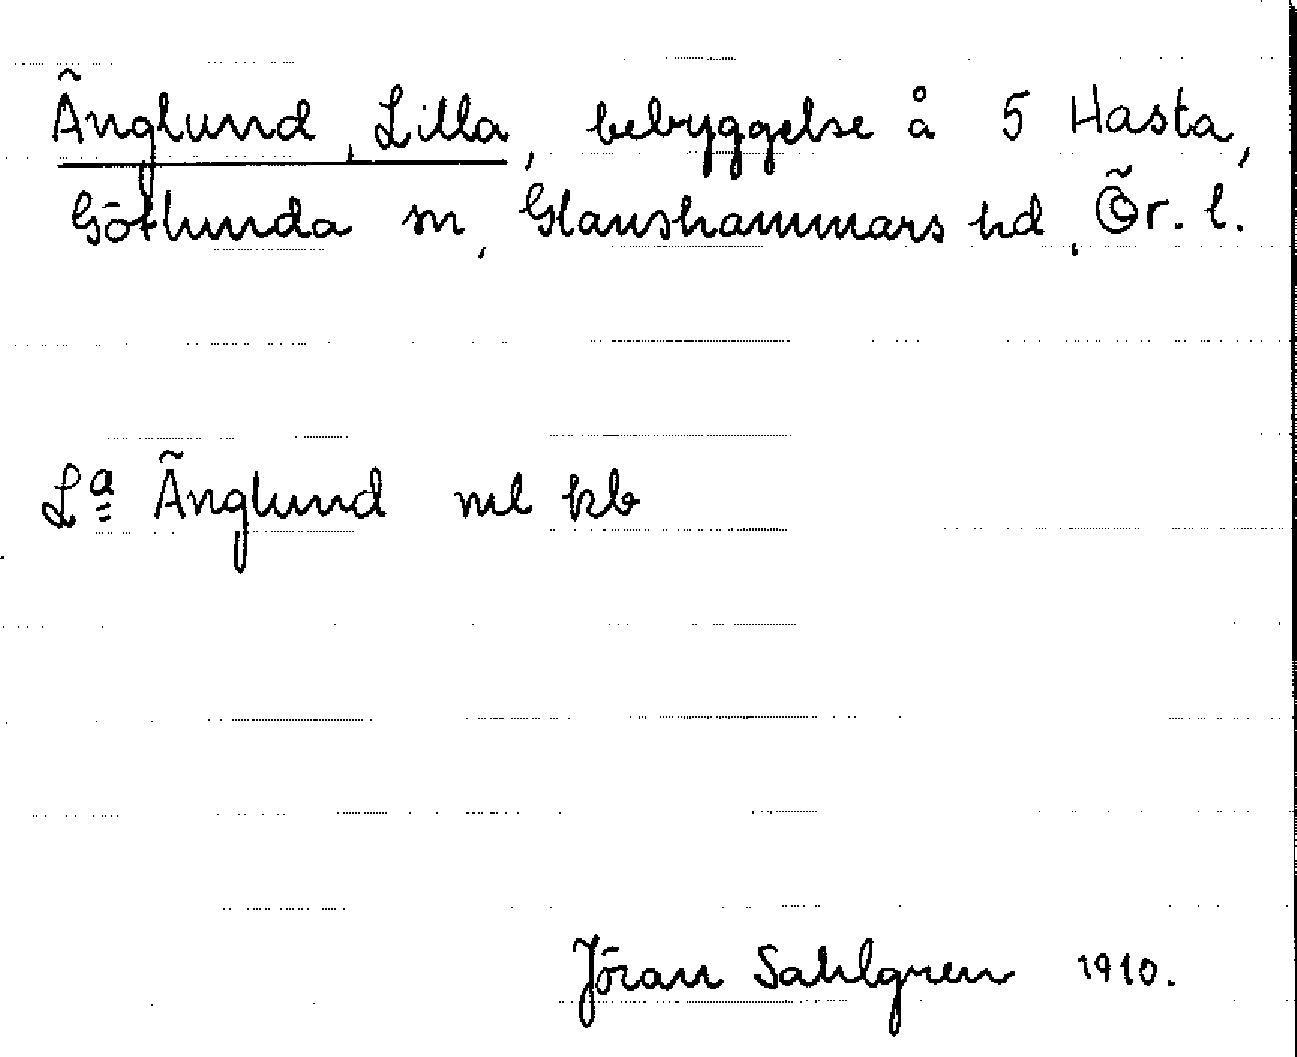 Änglund, Lilla, bebyggelse å 5 Hasta,
Götlunda sn, Glanshammars hd, Ör. l.
La Änglund ml kb
Jöran Sahlgren 1910.